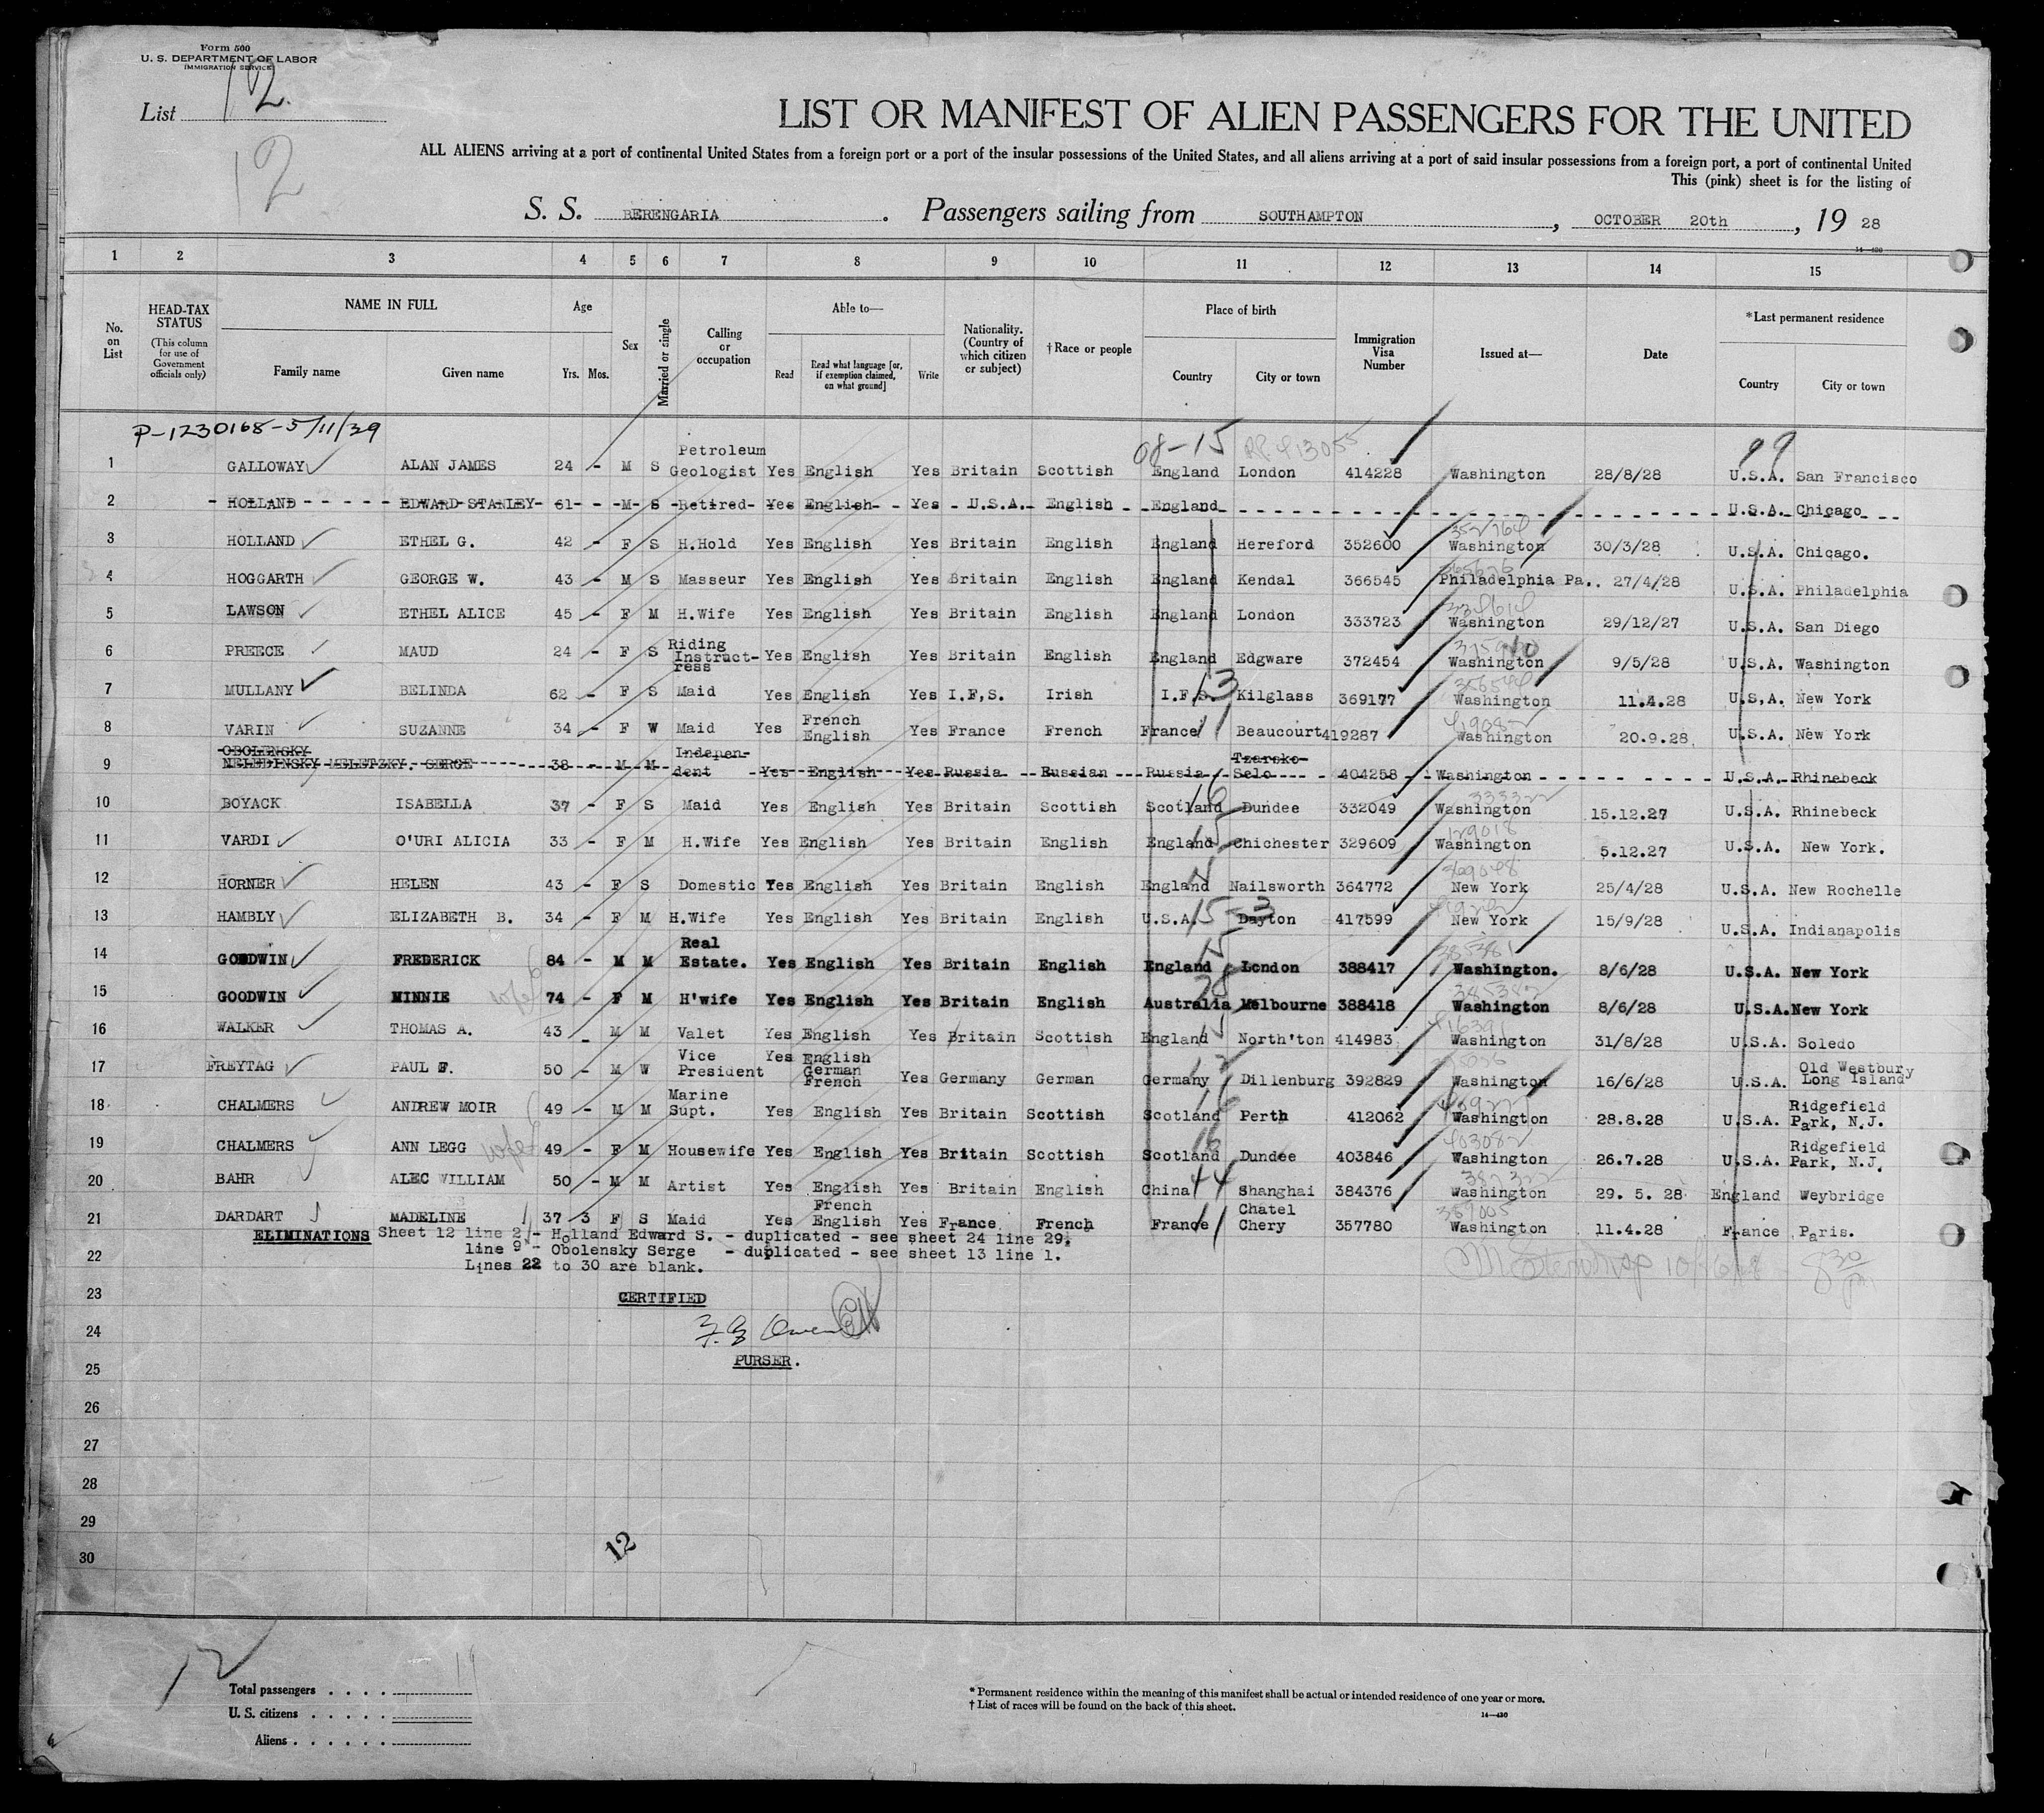 Form 500
U. S. DEPARTMENT OF LABOR
IMMIGRATION SERVICE
List 12
12
LIST OR MANIFEST OF ALIEN PASSENGERS FOR THE UNITED
ALL ALIENS arriving at a port of continental United States from a foreign port or a port of the insular possessions of the United States, and all aliens arriving at a port of said insular possessions from a foreign port, a port of continental United
This (pink) sheet is for the listing of
S. S. BERENGARIA . Passengers sailing from SOUTHAMPTON , OCTOBER 20th , 19 28
14—430
1 2 3 4 5 6 7 8 9 10 11 12 13 14 15
No. on List
HEAD-TAX STATUS (This column for use of Government officials only)
NAME IN FULL
Family name Given name
Age
Yrs. Mos.
Sex
Married or single
Calling or occupation
Able to—
Read Read what language [or, if exemption claimed, on what ground] Write
Nationality. (Country of which citizen or subject)
† Race or people
Place of birth
Country City or town
Immigration Visa Number
Issued at—
Date
* Last permanent residence
Country City or town
P-1230168-5/11/39
08-15 99
1 GALLOWAY ALAN JAMES 24 - M S Petroleum Geologist Yes English Yes Britain Scottish England London 414228 Washington 28/8/28 U.S.A. San Francisco
2 HOLLAND EDWARD STANLEY 61 - M S Retired Yes English Yes U.S.A. English England U.S.A. Chicago
3 HOLLAND ETHEL G. 42 - F S H.Hold Yes English Yes Britain English England Hereford 352600 Washington 30/3/28 U.S.A. Chicago.
4 HOGGARTH GEORGE W. 43 - M S Masseur Yes English Yes Britain English England Kendal 366545 Philadelphia Pa.. 27/4/28 U.S.A. Philadelphia
5 LAWSON ETHEL ALICE 45 - F M H.Wife Yes English Yes Britain English England London 333723 Washington 29/12/27 U.S.A. San Diego
6 PREECE MAUD 24 - F S Riding Instruct-ress Yes English Yes Britain English England Edgware 372454 Washington 9/5/28 U.S.A. Washington
7 MULLANY BELINDA 62 - F S Maid Yes English Yes I.F,S. Irish I.F.S. Kilglass 369177 Washington 11.4.28 U.S,A. New York
8 VARIN SUZANNE 34 - F W Maid Yes French English Yes France French France Beaucourt 419287 Washington 20.9.28 U.S.A. New York
9 OBOLENSKY NELEDINSKY MELETZKY. SERGE 38 - M M Indepen-dent Yes English Yes Russia Russian Russia Tzarsko-Selo 404258 Washington U.S.A. Rhinebeck
10 BOYACK ISABELLA 37 - F S Maid Yes English Yes Britain Scottish Scotland Dundee 332049 Washington 15.12.27 U.S.A. Rhinebeck
11 VARDI O'URI ALICIA 33 - F M H.Wife Yes English Yes Britain English England Chichester 329609 Washington 5.12.27 U.S.A. New York.
12 HORNER HELEN 43 - F S Domestic Yes English Yes Britain English England Nailsworth 364772 New York 25/4/28 U.S.A. New Rochelle
13 HAMBLY ELIZABETH B. 34 - F M H.Wife Yes English Yes Britain English U.S.A. Dayton 417599 New York 15/9/28 U.S.A. Indianapolis
14 GOODWIN FREDERICK 84 - M M Real Estate. Yes English Yes Britain English England London 388417 Washington. 8/6/28 U.S.A. New York
15 GOODWIN MINNIE wife 74 - F M H'wife Yes English Yes Britain English Australia Melbourne 388418 Washington 8/6/28 U.S.A. New York
16 WALKER THOMAS A. 43 - M M Valet Yes English Yes Britain Scottish England North'ton 414983 Washington 31/8/28 U.S.A. Soledo
17 FREYTAG PAUL F. 50 - M W Vice President Yes English German French Yes Germany German Germany Dillenburg 392829 Washington 16/6/28 U.S.A. Old Westbury Long Island
18 CHALMERS ANDREW MOIR 49 - M M Marine Supt. Yes English Yes Britain Scottish Scotland Perth 412062 Washington 28.8.28 U.S.A. Ridgefield Park, N.J.
19 CHALMERS ANN LEGG wife 49 - F M Housewife Yes English Yes Britain Scottish Scotland Dundee 403846 Washington 26.7.28 U.S.A. Ridgefield Park, N.J.
20 BAHR ALEC WILLIAM 50 - M M Artist Yes English Yes Britain English China Shanghai 384376 Washington 29. 5. 28 England Weybridge
21 DARDART MADELINE 37 3 F S Maid Yes French English Yes France French France Chatel Chery 357780 Washington 11.4.28 France Paris.
ELIMINATIONS Sheet 12 line 2 - Holland Edward S. - duplicated - see sheet 24 line 29.
line 9 - Obolensky Serge - duplicated - see sheet 13 line 1.
22 Lines 22 to 30 are blank.
23 CERTIFIED
24
25 PURSER.
26
27
28
29
30
12
12
Total passengers . . . .
U. S. citizens . . . . .
Aliens . . . . . .
* Permanent residence within the meaning of this manifest shall be actual or intended residence of one year or more.
† List of races will be found on the back of this sheet.
14—430